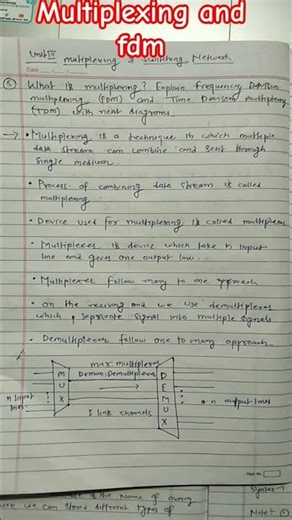 Multiplexing and
fdm
Unit II multiplexing & Switching Network
Date
What is multiplexing? Explain Frequency Division
multiplexing (FDM) and Time Division multiplexing
(TDM) with neat diagrams.
→ • Multiplexing is a technique in which multiple
data stream can combine and sent through
single medium.
• Process of combining data stream is called
multiplexing.
• Device used for multiplexing is called multiplexer
• Multiplexer is device which take n input
line and gives one output line.
• Multiplexer follow many to one approach
• On the reciving end we use demultiplexer
which separate signal into multiple signals
• Demultiplexer follow one to many approach.
mux: multiplexer
Demux: Demultiplexer
n input
lines
M
U
X
1 link channels
D
E
M
U
X
n output lines
is the name of
we can stored different types of
Syntax →
Note: